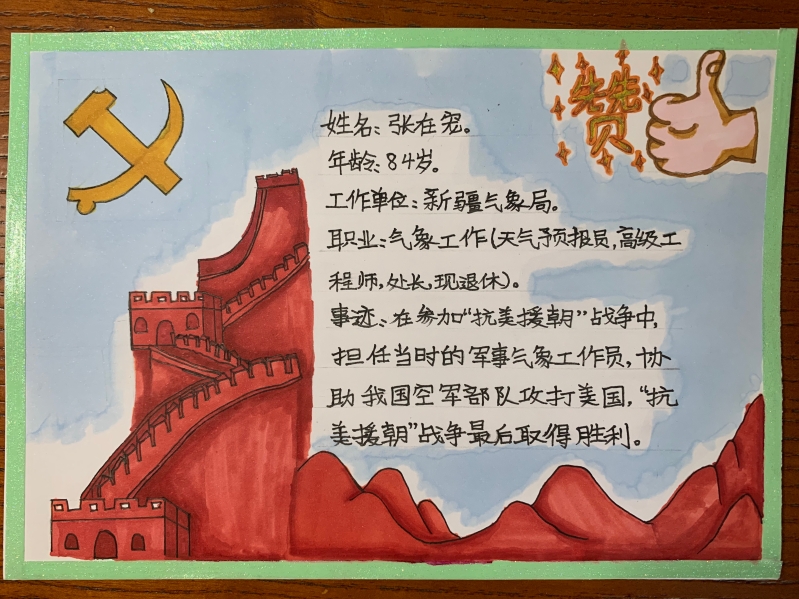 赞
姓名：张在宽。
年龄：84岁。
工作单位：新疆气象局。
职业：气象工作(天气预报员,高级工
程师,处长,现退休)。
事迹：在参加“抗美援朝”战争中,
担任当时的军事气象工作员,协
助我国空军部队攻打美国,“抗
美援朝”战争最后取得胜利。